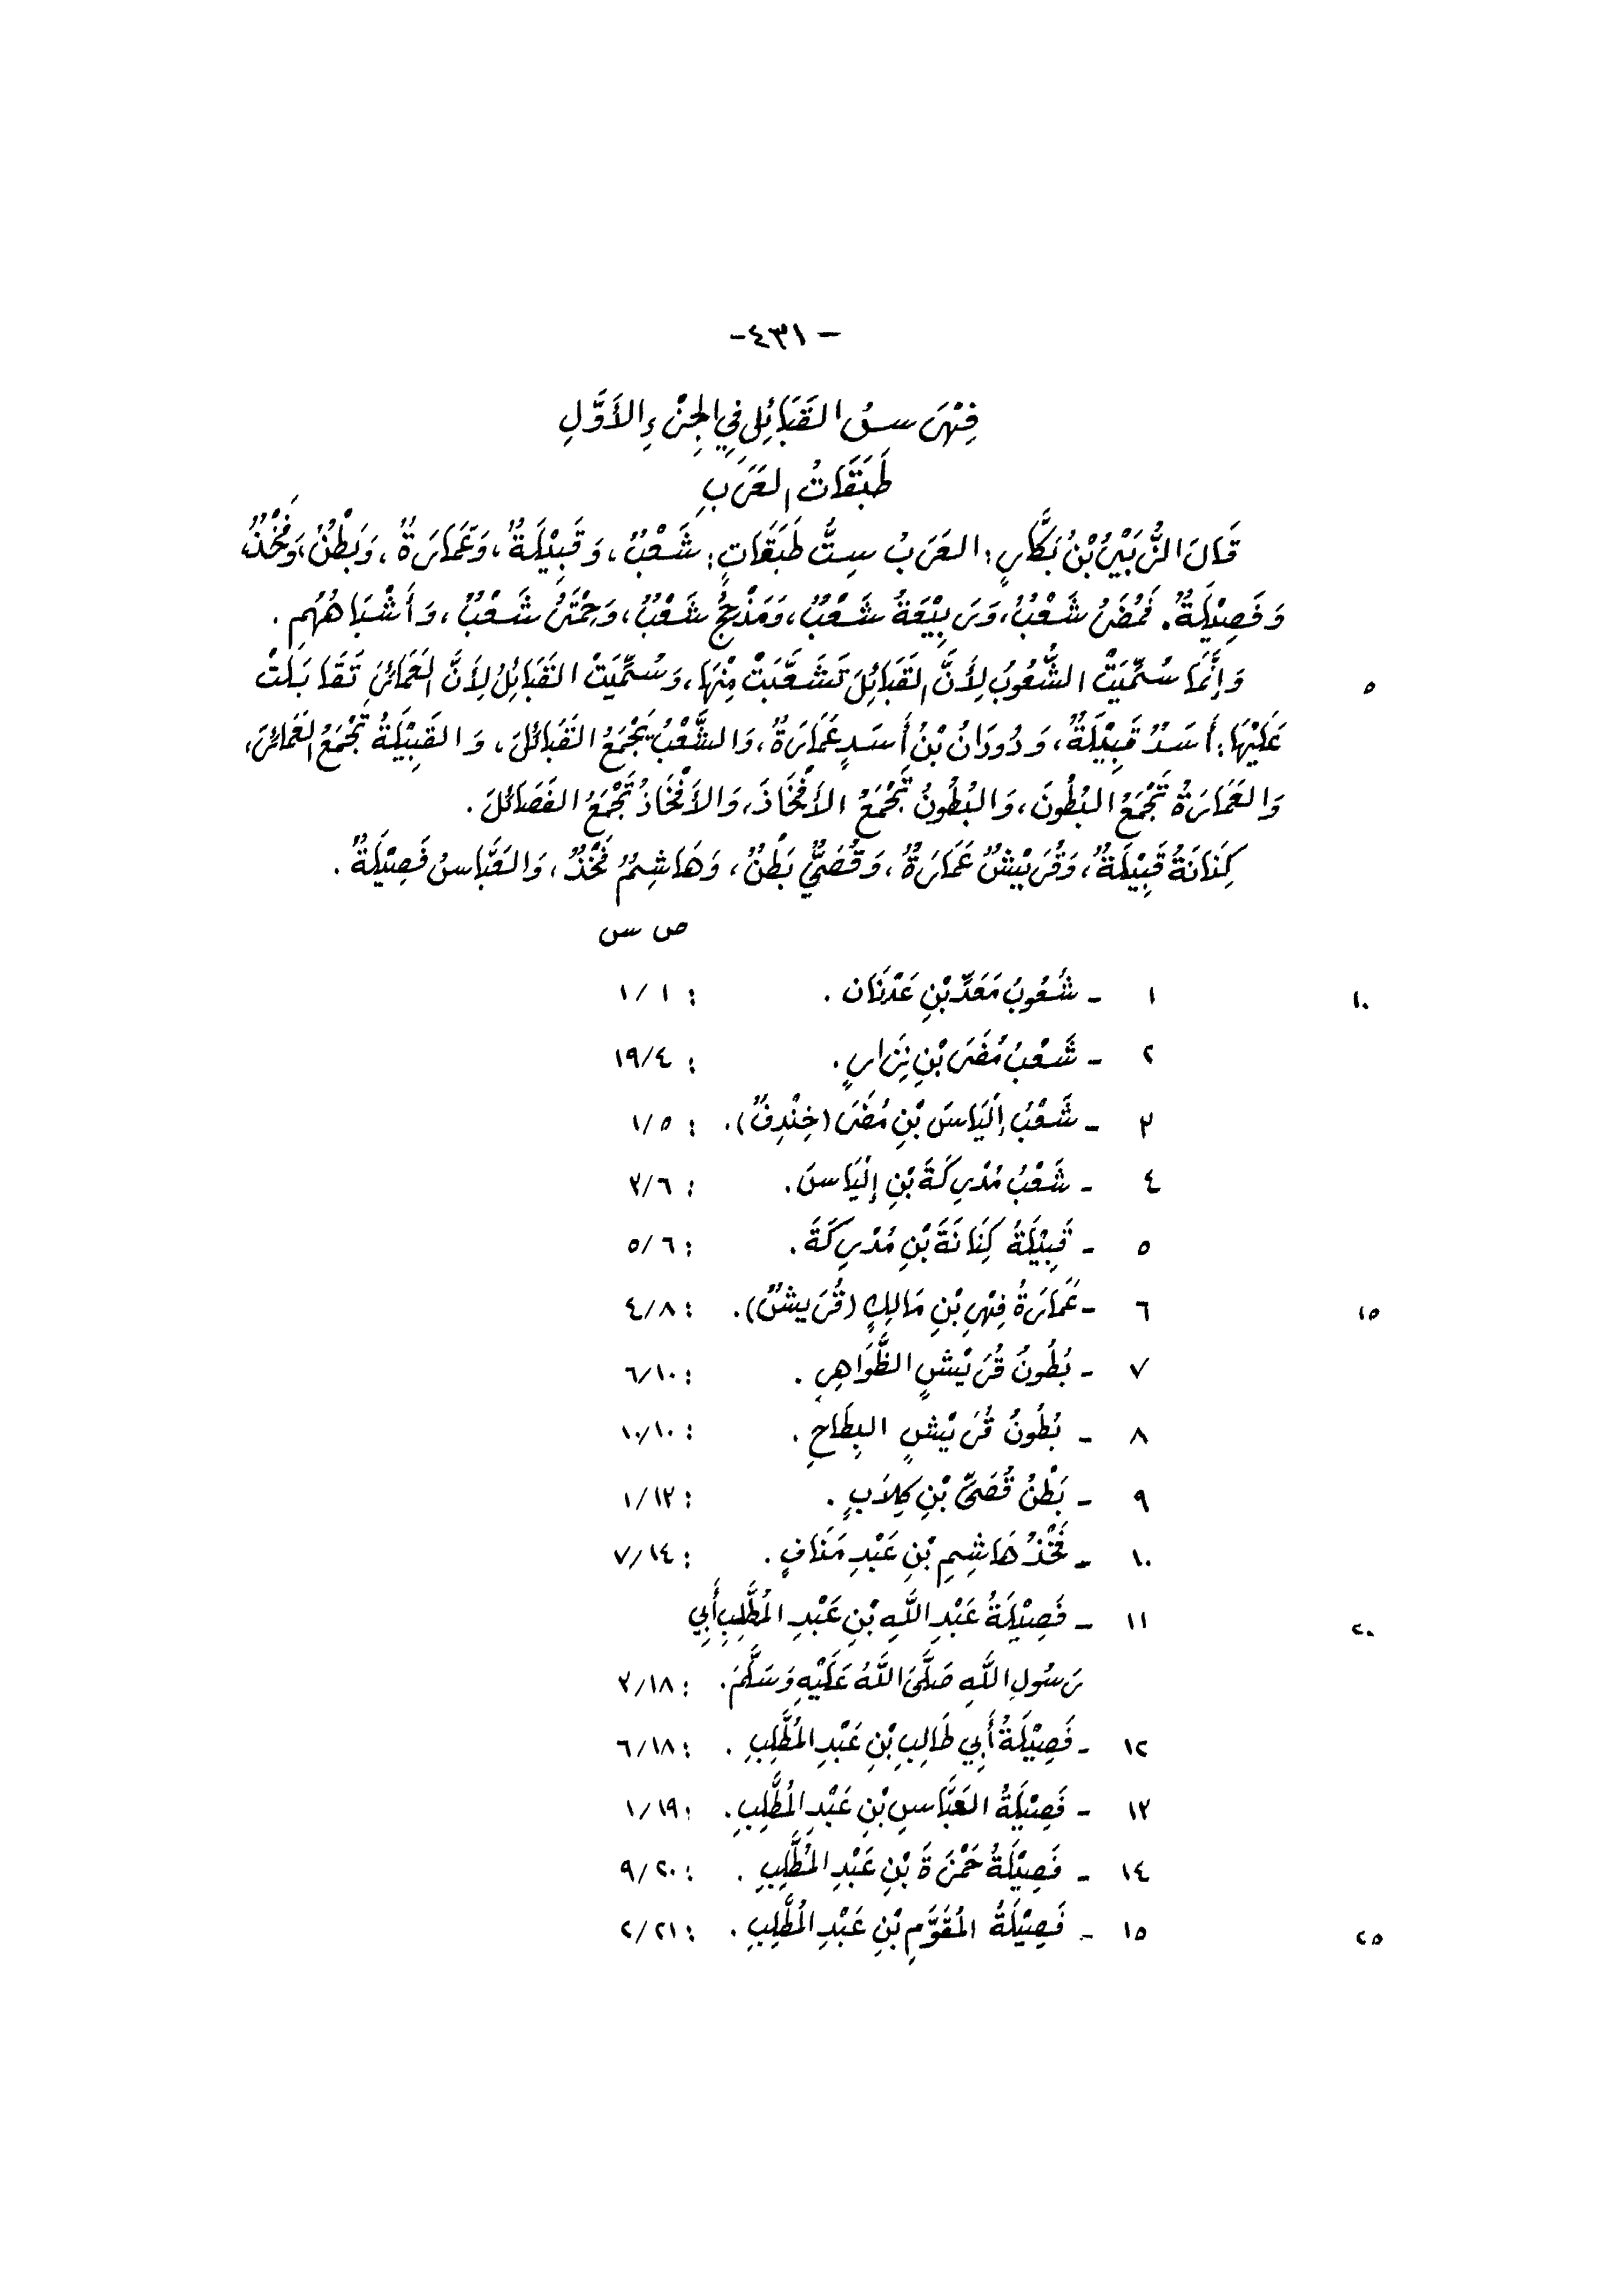 -٤٣١-
فِهْرَسُ القَبَائِلِ فِي الجُزْءِ الأَوَّلِ
طَبَقَاتُ العَرَبِ
قَالَ الزُّبَيْرُ بْنُ بَكَّارٍ: العَرَبُ سِتُّ طَبَقَاتٍ: شَعْبٌ، وَقَبِيْلَةٌ، وَعَمَارَةٌ، وَبَطْنٌ، وَفَخْذٌ،
وَفَصِيْلَةٌ. فَمُضَرُ شَعْبٌ، وَرَبِيْعَةُ شَعْبٌ، وَمَذْحِجُ شَعْبٌ، وَحِمْيَرُ شَعْبٌ، وَأَشْبَاهُهُم.
وَإِنَّمَا سُمِّيَتْ الشُّعُوبُ لِأَنَّ القَبَائِلَ تَشَعَّبَتْ مِنْهَا، وَسُمِّيَتْ القَبَائِلُ لِأَنَّ العَمَائِرَ تَقَابَلَتْ ٥
عَلَيْهَا: أَسَدٌ قَبِيْلَةٌ، وَدُودَانُ بْنُ أَسَدٍ عَمَارَةٌ، وَالشَّعْبُ يَجْمَعُ القَبَائِلَ، وَالقَبِيْلَةُ تَجْمَعُ العَمَائِرَ،
وَالعَمَارَةُ تَجْمَعُ البُطُونَ، وَالبُطُونُ تَجْمَعُ الأَفْخَاذَ، وَالأَفْخَاذُ تَجْمَعُ الفَصَائِلَ.
كِنَانَةُ قَبِيْلَةٌ، وَقُرَيْشٌ عَمَارَةٌ، وَقُصَيٌّ بَطْنٌ، وَهَاشِمٌ فَخْذٌ، وَالعَبَّاسُ فَصِيْلَةٌ.
ص س
١ - شُعُوبُ مَعَدِّ بْنِ عَدْنَان. : ١/١ ١٠
٢ - شَعْبُ مُضَرَ بْنِ نِزَارٍ. : ١٩/٤
٣ - شَعْبُ إلْيَاسَ بْنِ مُضَرَ (خِنْدِفٌ). : ١/٥
٤ - شَعْبُ مُدْرِكَةَ بْنِ إلْيَاسَ. : ٣/٦
٥ - قَبِيْلَةُ كِنَانَةَ بْنِ مُدْرِكَةَ. : ٥/٦
٦ - عَمَارَةُ فِهْرِ بْنِ مَالِكٍ (قُرَيشٌ). : ٤/٨ ١٥
٧ - بُطُونُ قُرَيْشٍ الظَّوَاهِرِ. : ٦/١٠
٨ - بُطُونُ قُرَيْشٍ البِطَاحِ. : ١٠/١٠
٩ - بَطْنُ قُصَيِّ بْنِ كِلَابٍ. : ١/١٣
١٠ - فَخْذُ هَاشِمِ بْنِ عَبْدِ مَنَافٍ. : ٧/١٤
١١ - فَصِيْلَةُ عَبْدِ اللَّهِ بْنِ عَبْدِ المُطَّلِبِ أَبِي ٢٠
رَسُولِ اللَّهِ صَلَّى اللَّهُ عَلَيْهِ وَسَلَّمَ. : ٣/١٨
١٢ - فَصِيْلَةُ أَبِي طَالِبِ بْنِ عَبْدِ المُطَّلِبِ. : ٦/١٨
١٣ - فَصِيْلَةُ العَبَّاسِ بْنِ عَبْدِ المُطَّلِبِ. : ١/١٩
١٤ - فَصِيْلَةُ حَمْزَةَ بْنِ عَبْدِ المُطَّلِبِ. : ٩/٢٠
١٥ - فَصِيْلَةُ المُقَوَّمِ بْنِ عَبْدِ المُطَّلِبِ. : ٢/٢١ ٢٥